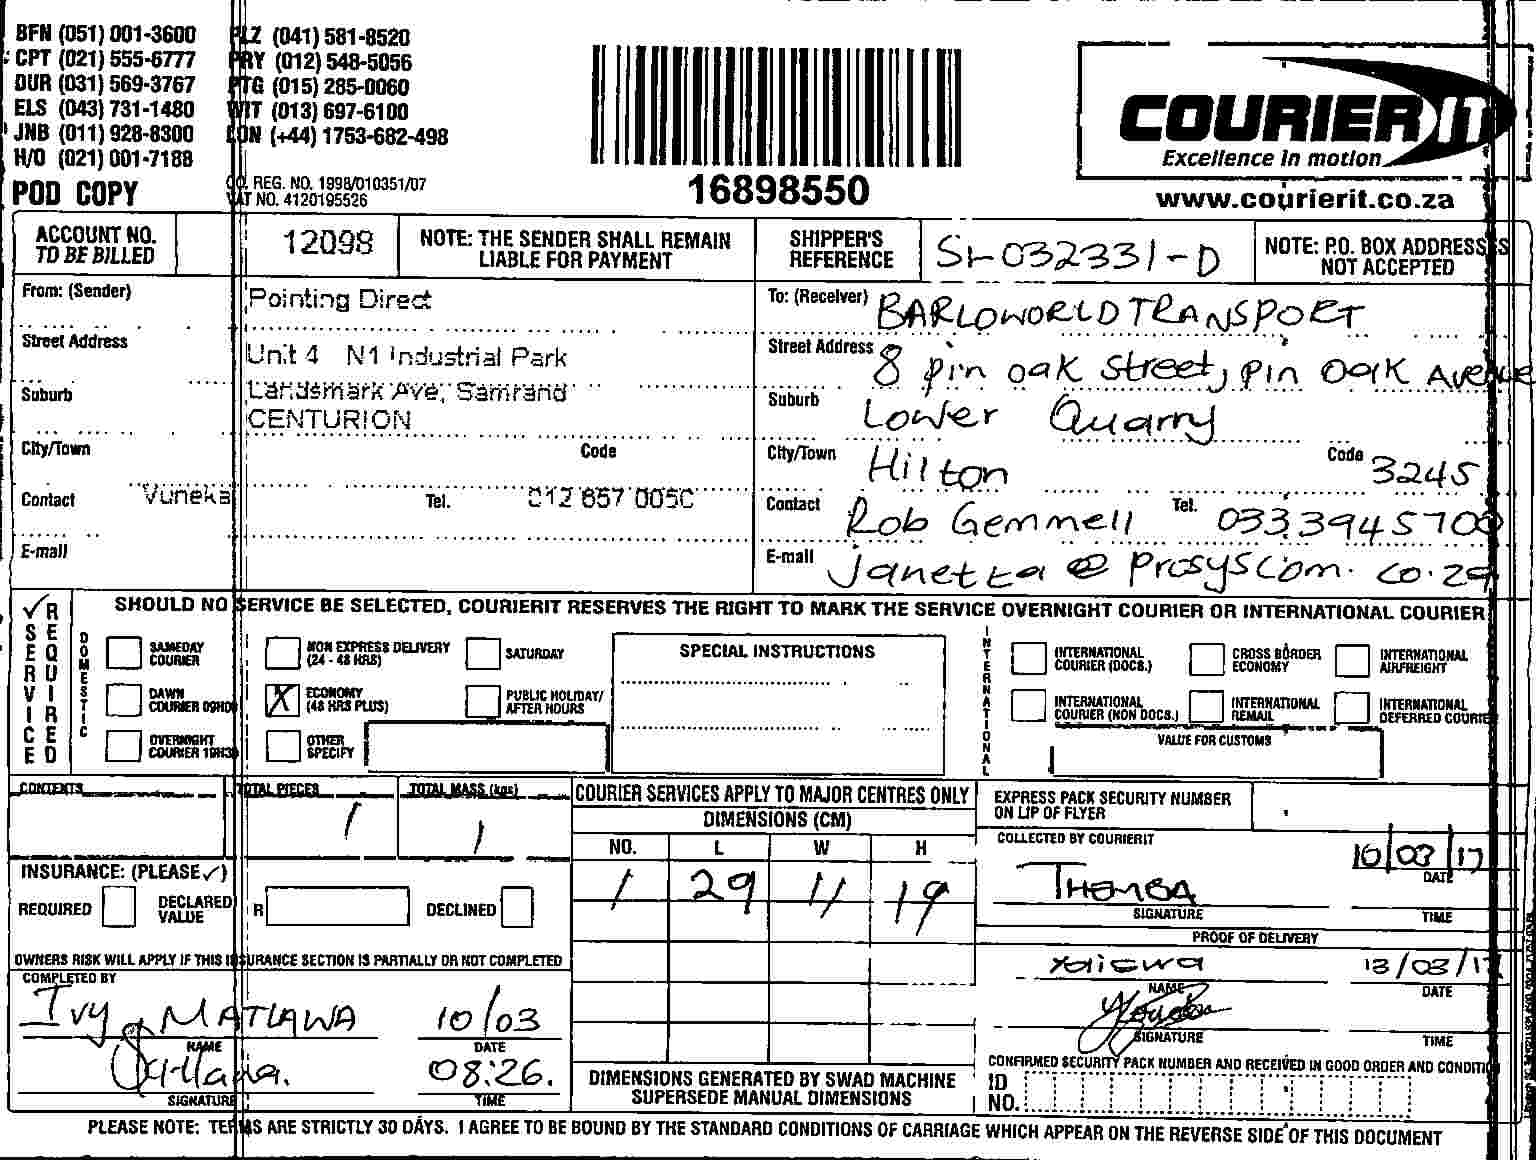 BFN (051) 001-3600 PLZ (041) 581-8520
CPT (021) 555-6777 PRY (012) 548-5056
DUR (031) 569-3767 PTG (015) 285-0060
ELS (043) 731-1480 WIT (013) 697-6100
JNB (011) 928-8300 LON (+44) 1753-682-498
H/O (021) 001-7188
POD COPY
CO. REG. NO. 1998/010351/07
VAT NO. 4120195526
16898550
COURIER IT
Excellence in motion
www.courierit.co.za
ACCOUNT NO. TO BE BILLED
12098
NOTE: THE SENDER SHALL REMAIN LIABLE FOR PAYMENT
SHIPPER'S REFERENCE
SI-032331-D
NOTE: P.O. BOX ADDRESSES NOT ACCEPTED
From: (Sender) Pointing Direct
Street Address Unit 4 N1 Industrial Park
Suburb Landsmark Ave, Samrand
CENTURION
City/Town Code
Contact Vuneka Tel. 012 657 0050
E-mail
To: (Receiver) BARLOWORLD TRANSPORT
Street Address 8 pin oak street, pin oak Avenue
Suburb Lower Quarry
City/Town Hilton Code 3245
Contact Rob Gemmell Tel. 0333945700
E-mail Janetta@Prosyscom.co.za
SERVICE REQUIRED
SHOULD NO SERVICE BE SELECTED, COURIERIT RESERVES THE RIGHT TO MARK THE SERVICE OVERNIGHT COURIER OR INTERNATIONAL COURIER
DOMESTIC
SAMEDAY COURIER
DAWN COURIER 09H00
OVERNIGHT COURIER 10H30
NON EXPRESS DELIVERY (24 - 48 HRS)
X ECONOMY (48 HRS PLUS)
OTHER SPECIFY
SATURDAY
PUBLIC HOLIDAY/ AFTER HOURS
SPECIAL INSTRUCTIONS
INTERNATIONAL
INTERNATIONAL COURIER (DOCS.)
INTERNATIONAL COURIER (NON DOCS.)
CROSS BORDER ECONOMY
INTERNATIONAL REMAIL
INTERNATIONAL AIRFREIGHT
INTERNATIONAL DEFERRED COURIER
VALUE FOR CUSTOMS
CONTENTS
TOTAL PIECES
1
TOTAL MASS (kgs)
1
INSURANCE: (PLEASE ✓)
REQUIRED DECLARED VALUE R DECLINED
OWNERS RISK WILL APPLY IF THIS INSURANCE SECTION IS PARTIALLY OR NOT COMPLETED
COMPLETED BY
Ivy MATLAWA 10/03
NAME DATE
08:26.
SIGNATURE TIME
COURIER SERVICES APPLY TO MAJOR CENTRES ONLY
DIMENSIONS (CM)
NO. L W H
1 29 11 19
DIMENSIONS GENERATED BY SWAD MACHINE SUPERSEDE MANUAL DIMENSIONS
EXPRESS PACK SECURITY NUMBER ON LIP OF FLYER
COLLECTED BY COURIERIT
THEMBA 10/03/17
DATE
SIGNATURE TIME
PROOF OF DELIVERY
13/03/17
NAME DATE
SIGNATURE TIME
CONFIRMED SECURITY PACK NUMBER AND RECEIVED IN GOOD ORDER AND CONDITION
ID NO.
PLEASE NOTE: TERMS ARE STRICTLY 30 DAYS. I AGREE TO BE BOUND BY THE STANDARD CONDITIONS OF CARRIAGE WHICH APPEAR ON THE REVERSE SIDE OF THIS DOCUMENT